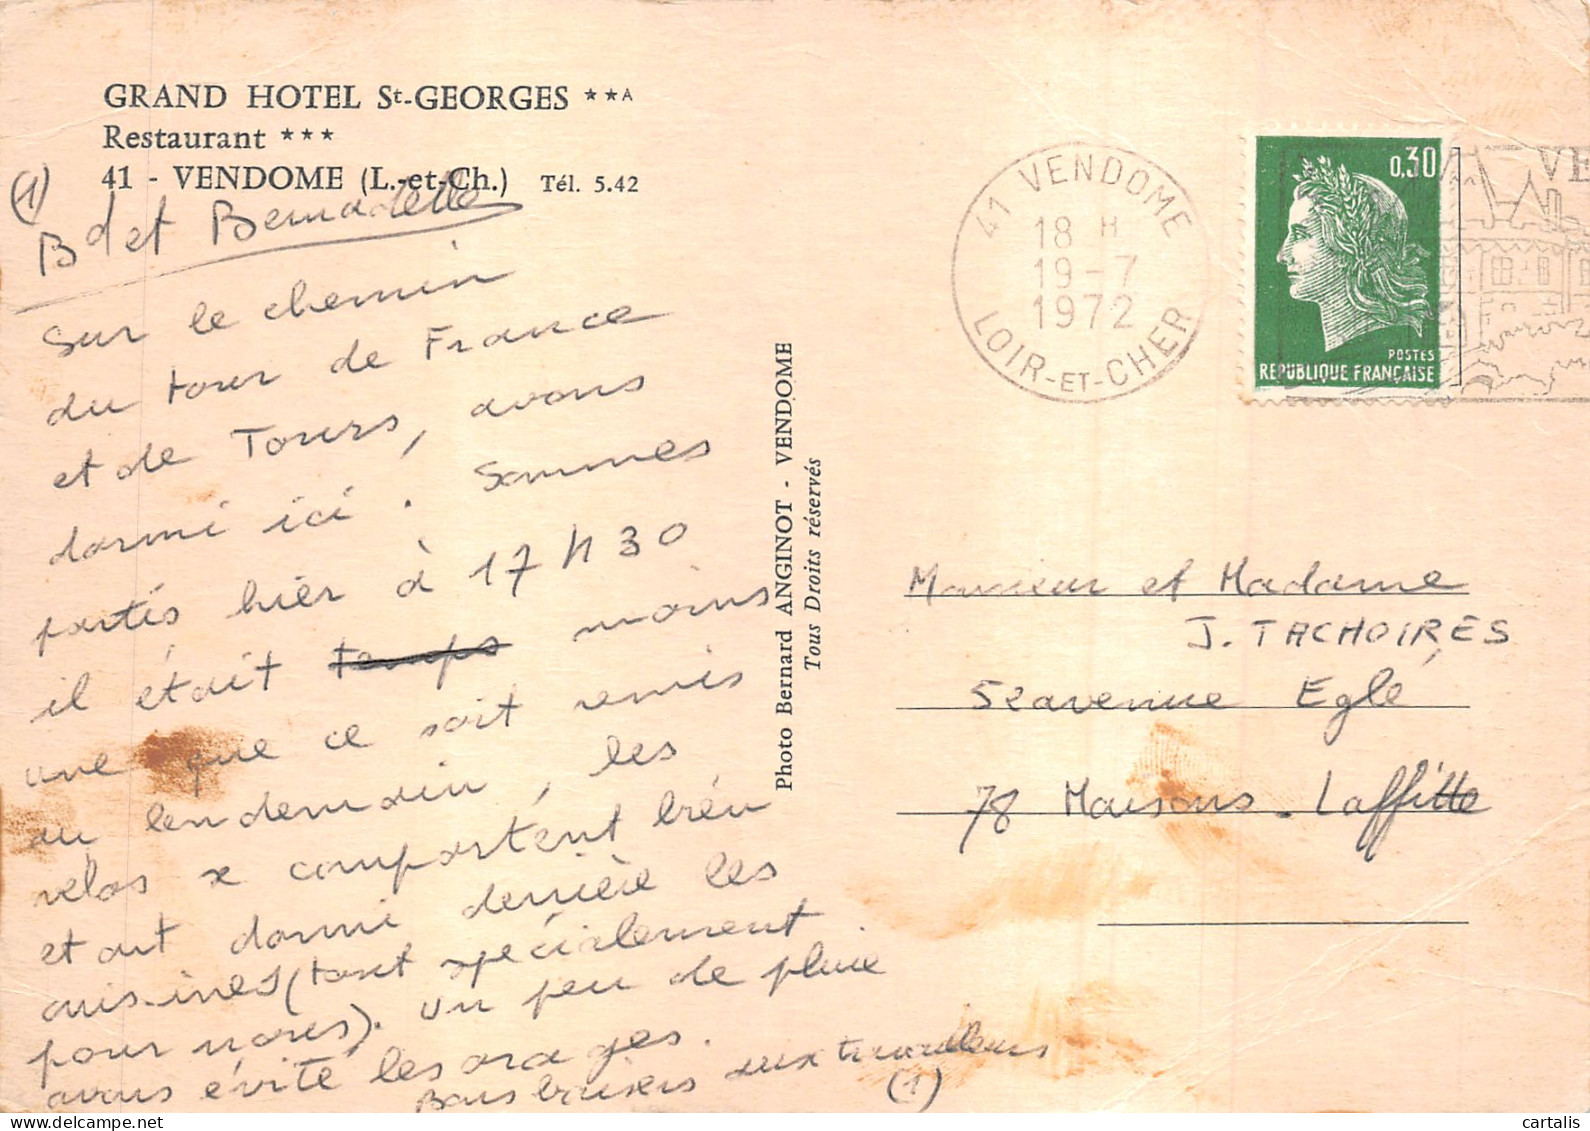 GRAND HOTEL St-GEORGES **A
Restaurant ***
41 - VENDOME (L.-et-Ch.) Tél. 5.42
(1)
Bd et Bernadette
Sur le chemin
du tour de France
et de Tours, avons
dormi ici. Sommes
partis hier à 17 H 30
il était temps moins
une que ce soit remis
au lendemain, les
velos se comportent bien
et ont dormi derrière les
cuisines (tout spécialement
pour nous). Un peu de pluie
avons évité les orages.
Bons baisers aux travailleurs
(1)
Photo Bernard ANGINOT - VENDOME
Tous Droits réservés
41 VENDOME
18 H
19-7
1972
LOIR-ET-CHER
0,30
POSTES
REPUBLIQUE FRANÇAISE
VE
Monsieur et Madame
J. TACHOIRES
52 avenue Eglé
78 Maisons-Laffitte
cartalis